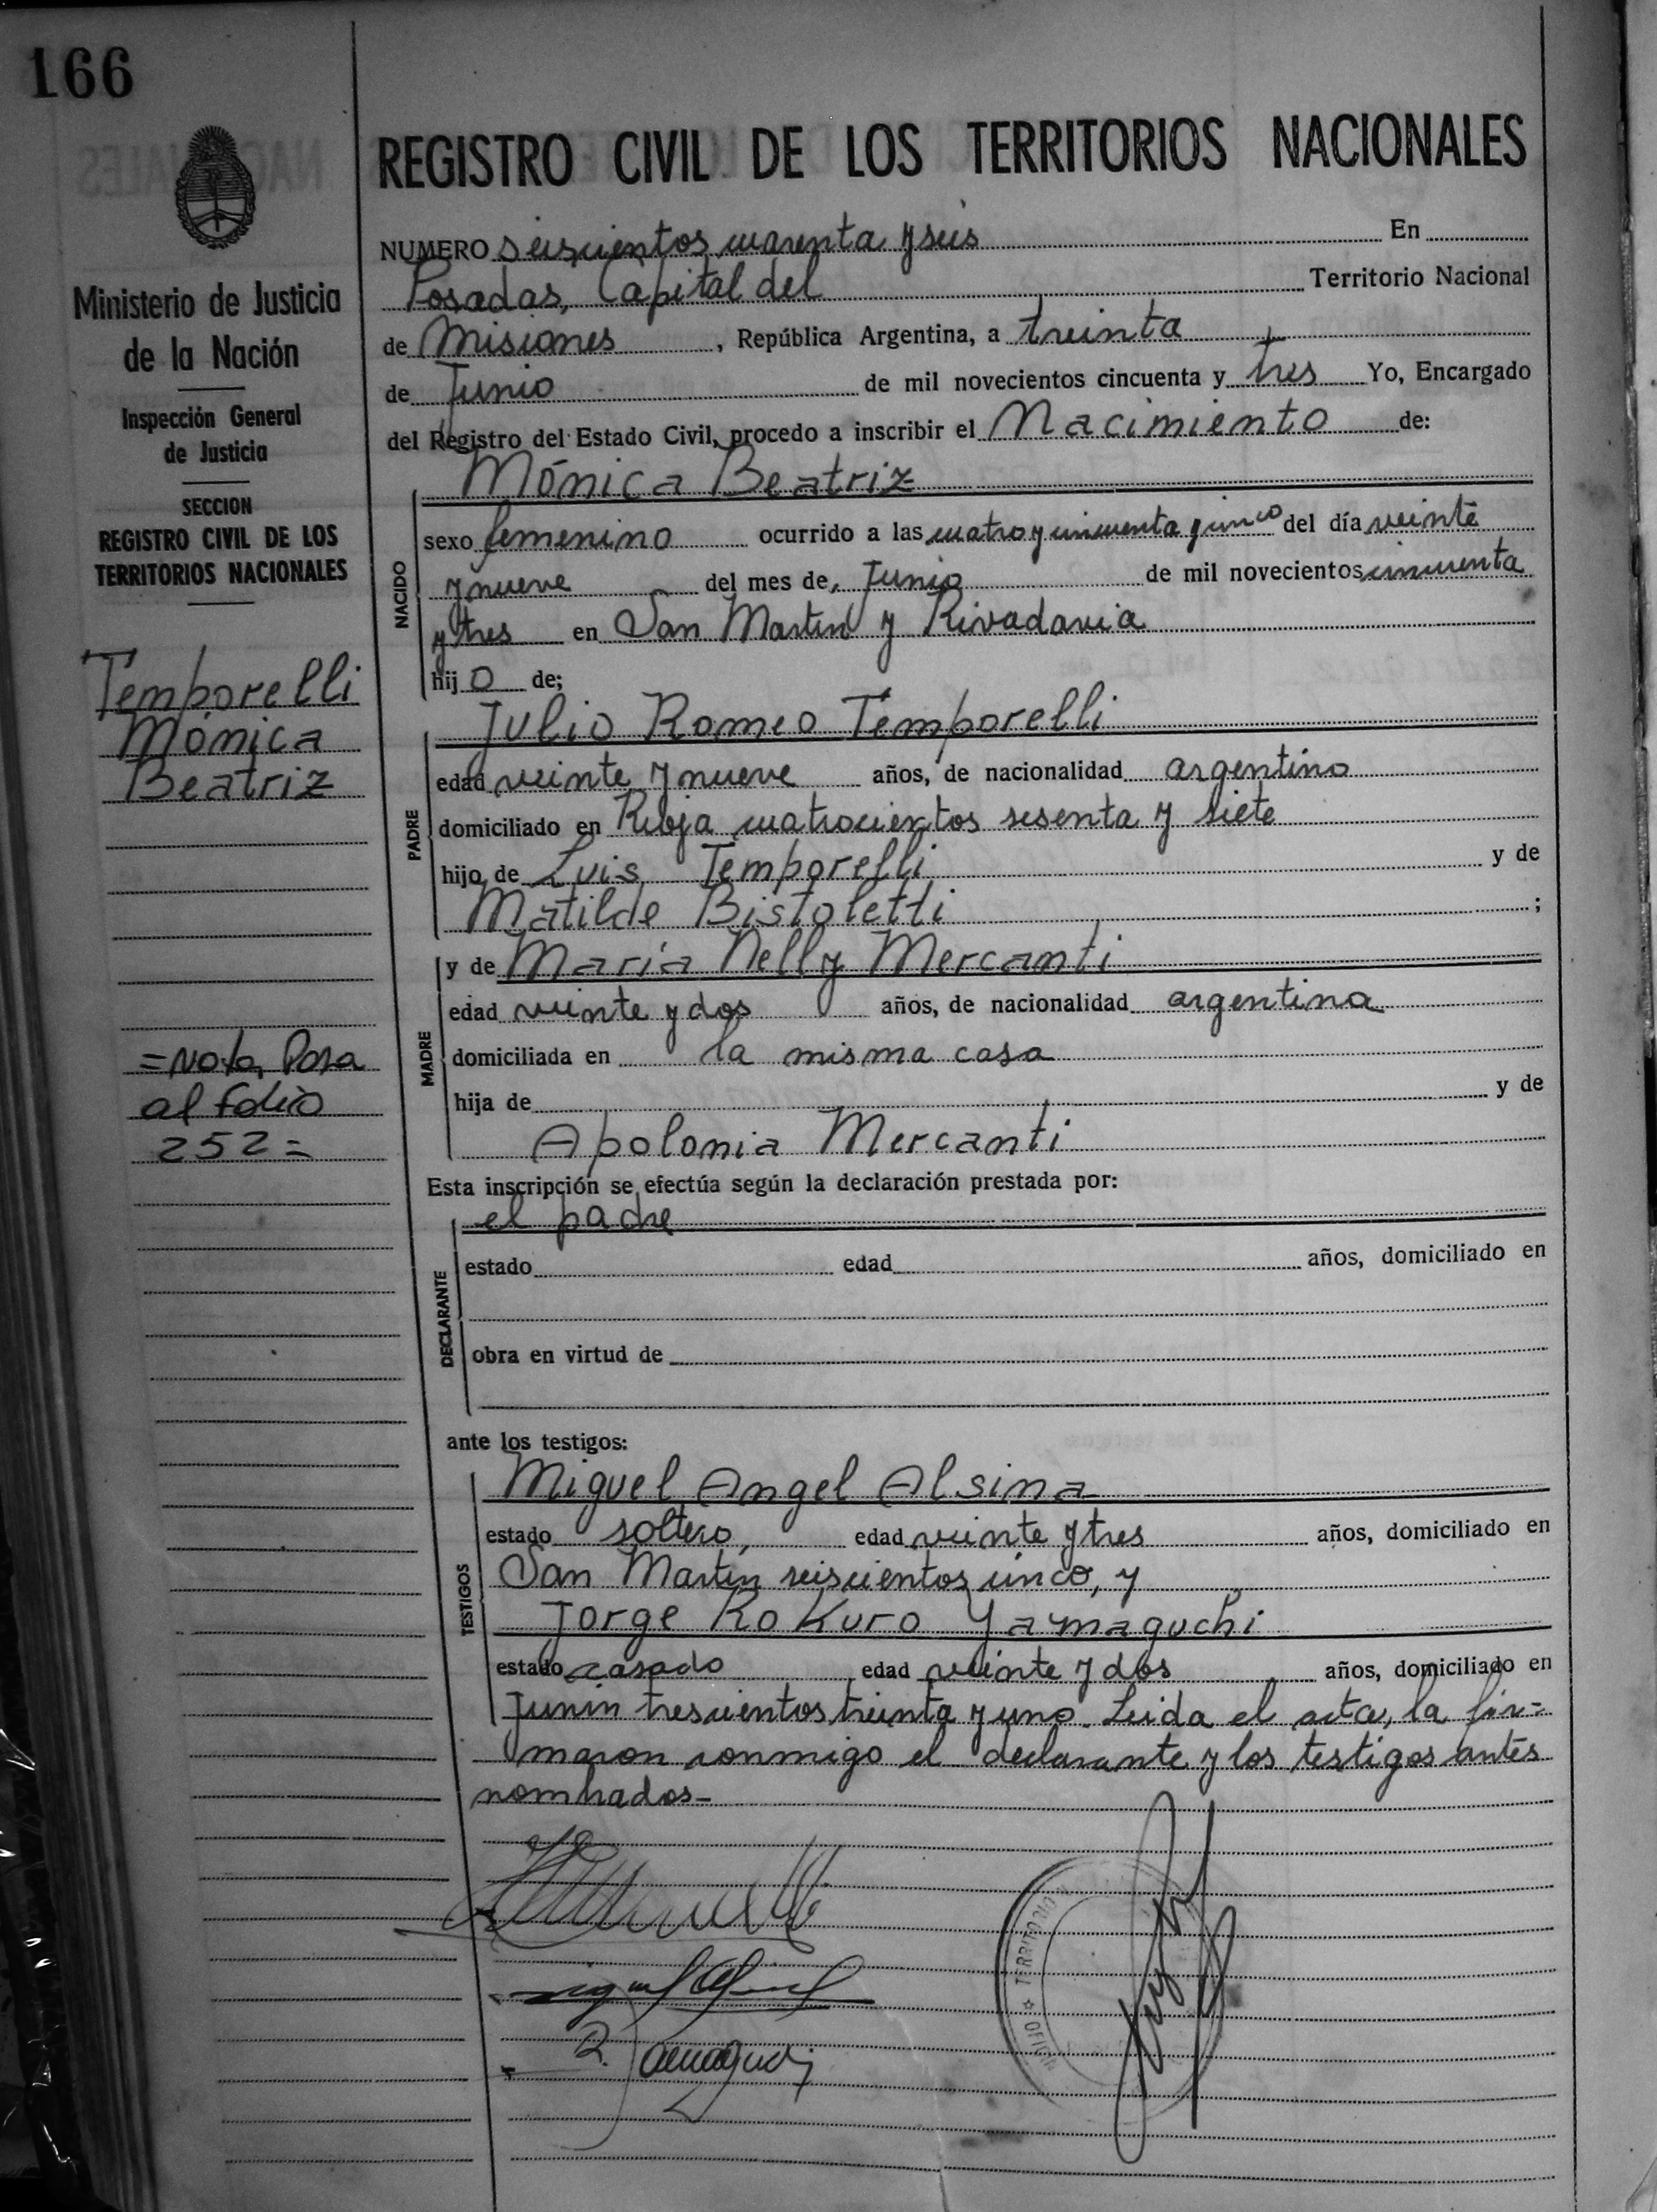 166
REGISTRO CIVIL DE LOS TERRITORIOS NACIONALES
Ministerio de Justicia
de la Nación
Inspección General
de Justicia
SECCION
REGISTRO CIVIL DE LOS
TERRITORIOS NACIONALES
Temporelli
Mónica
Beatriz
=Nota Pasa
al folio
252=
NUMERO seiscientos cuarenta y seis En
Posadas, Capital del Territorio Nacional
de Misiones, República Argentina, a treinta
de Junio de mil novecientos cincuenta y tres Yo, Encargado
del Registro del Estado Civil, procedo a inscribir el Nacimiento de:
NACIDO
Mónica Beatriz
sexo femenino ocurrido a las cuatro y cincuenta y cinco del día veinte
y nueve del mes de Junio de mil novecientos cincuenta
y tres en San Martín y Rivadavia
hij o de;
PADRE
Julio Romeo Temporelli
edad veinte y nueve años, de nacionalidad argentino
domiciliado en Rioja cuatrocientos sesenta y siete
hijo de Luis Temporelli y de
Matilde Bistoletti ;
MADRE
y de María Nelly Mercanti
edad veinte y dos años, de nacionalidad argentina
domiciliada en la misma casa
hija de y de
Apolonia Mercanti
Esta inscripción se efectúa según la declaración prestada por:
DECLARANTE
el padre
estado edad años, domiciliado en
obra en virtud de
ante los testigos:
TESTIGOS
Miguel Angel Alsina
estado soltero, edad veinte y tres años, domiciliado en
San Martín seiscientos cinco, y
Jorge Rokuro Yamaguchi
estado casado edad veinte y dos años, domiciliado en
Junín trescientos treinta y uno. Leida el acta, la fir=
maron conmigo el declarante y los testigos antes
nombrados-
R. Yamaguchi
TERRITORIO
OFICIN